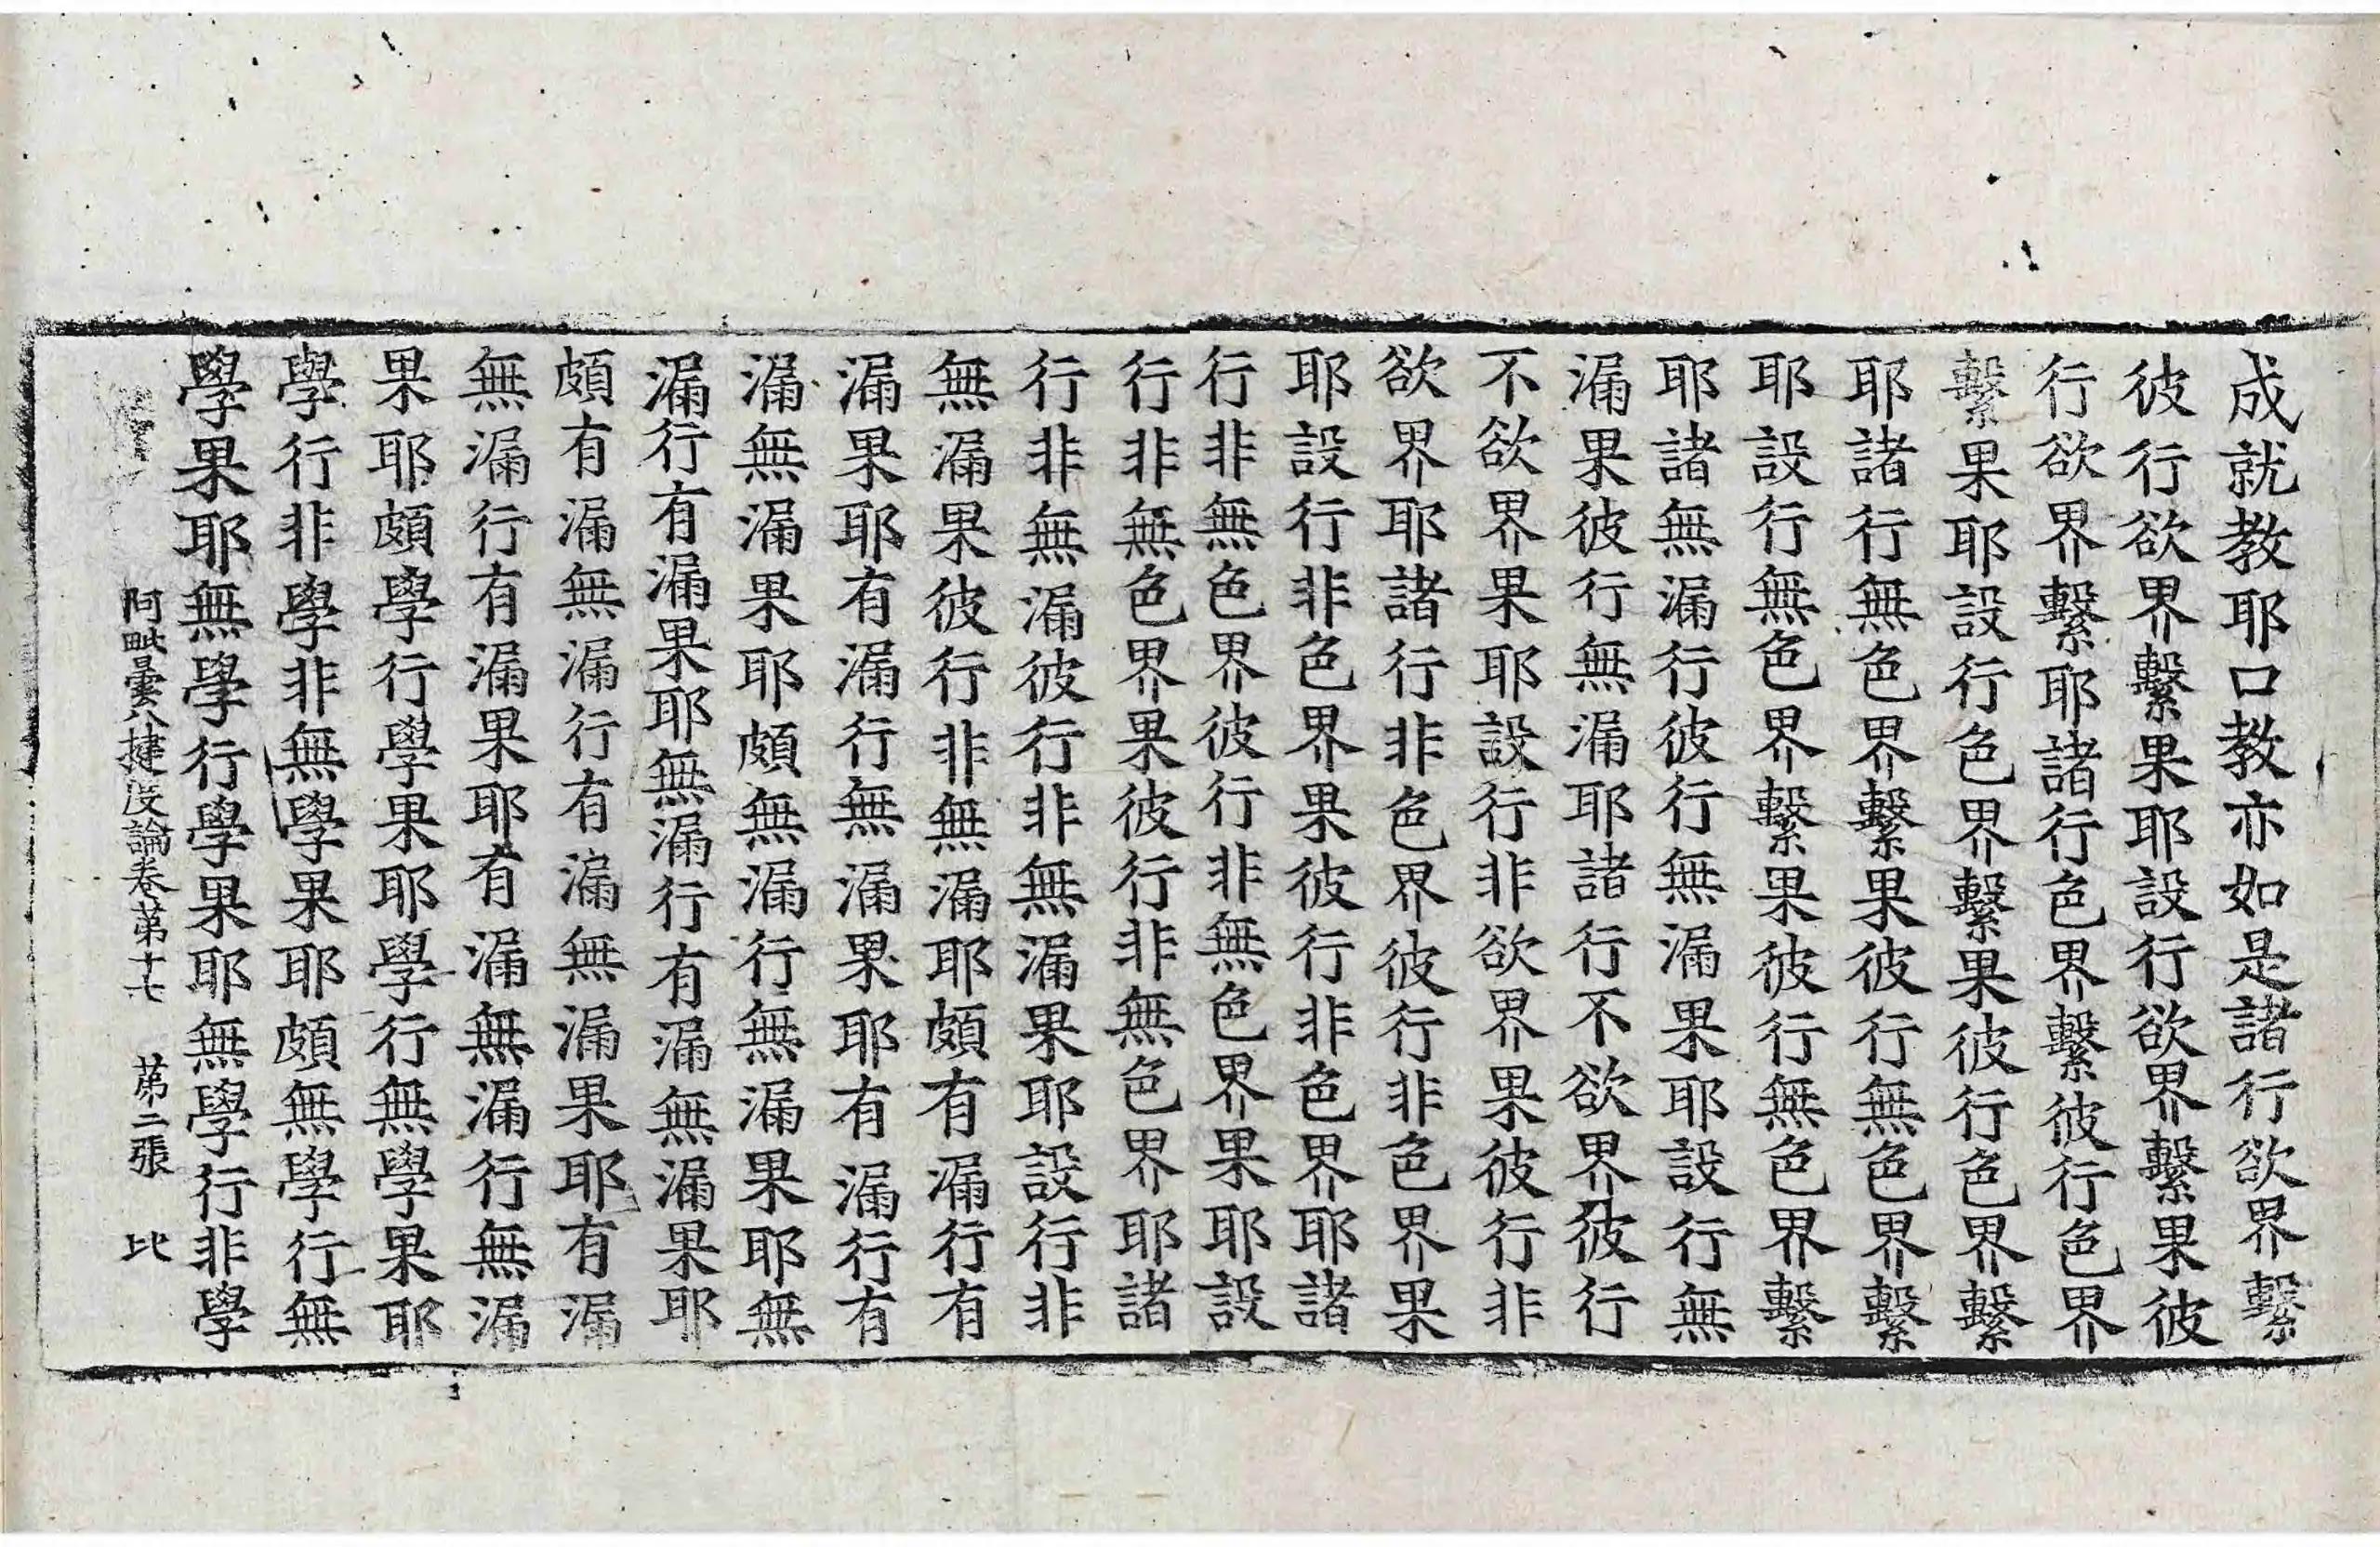 成就教耶口教亦如是諸行欲界繫
彼行欲界繫果耶設行欲界繫果彼
行欲界繫耶諸行色界繫彼行色界
繫果耶設行色界繫果彼行色界繫
耶諸行無色界繫果彼行無色界繫
耶設行無色界繫果彼行無色界繫
耶諸無漏行彼行無漏果耶設行無
漏果彼行無漏耶諸行不欲界彼行
不欲界果耶設行非欲界果彼行非
欲界耶諸行非色界彼行非色界果
耶設行非色界果彼行非色界耶諸
行非無色界彼行非無色界果耶設
行非無色界果彼行非無色界耶諸
行非無漏彼行非無漏果耶設行非
無漏果彼行非無漏耶頗有漏行有
漏果耶有漏行無漏果耶有漏行有
漏無漏果耶頗無漏行無漏果耶無
漏行有漏果耶無漏行有漏無漏果耶
頗有漏無漏行有漏無漏果耶有漏
無漏行有漏果耶有漏無漏行無漏
果耶頗學行學果耶學行無學果耶
學行非學非無學果耶頗無學行無
學果耶無學行學果耶無學行非學
阿毗曇八揵度論卷第十七 第二張 比